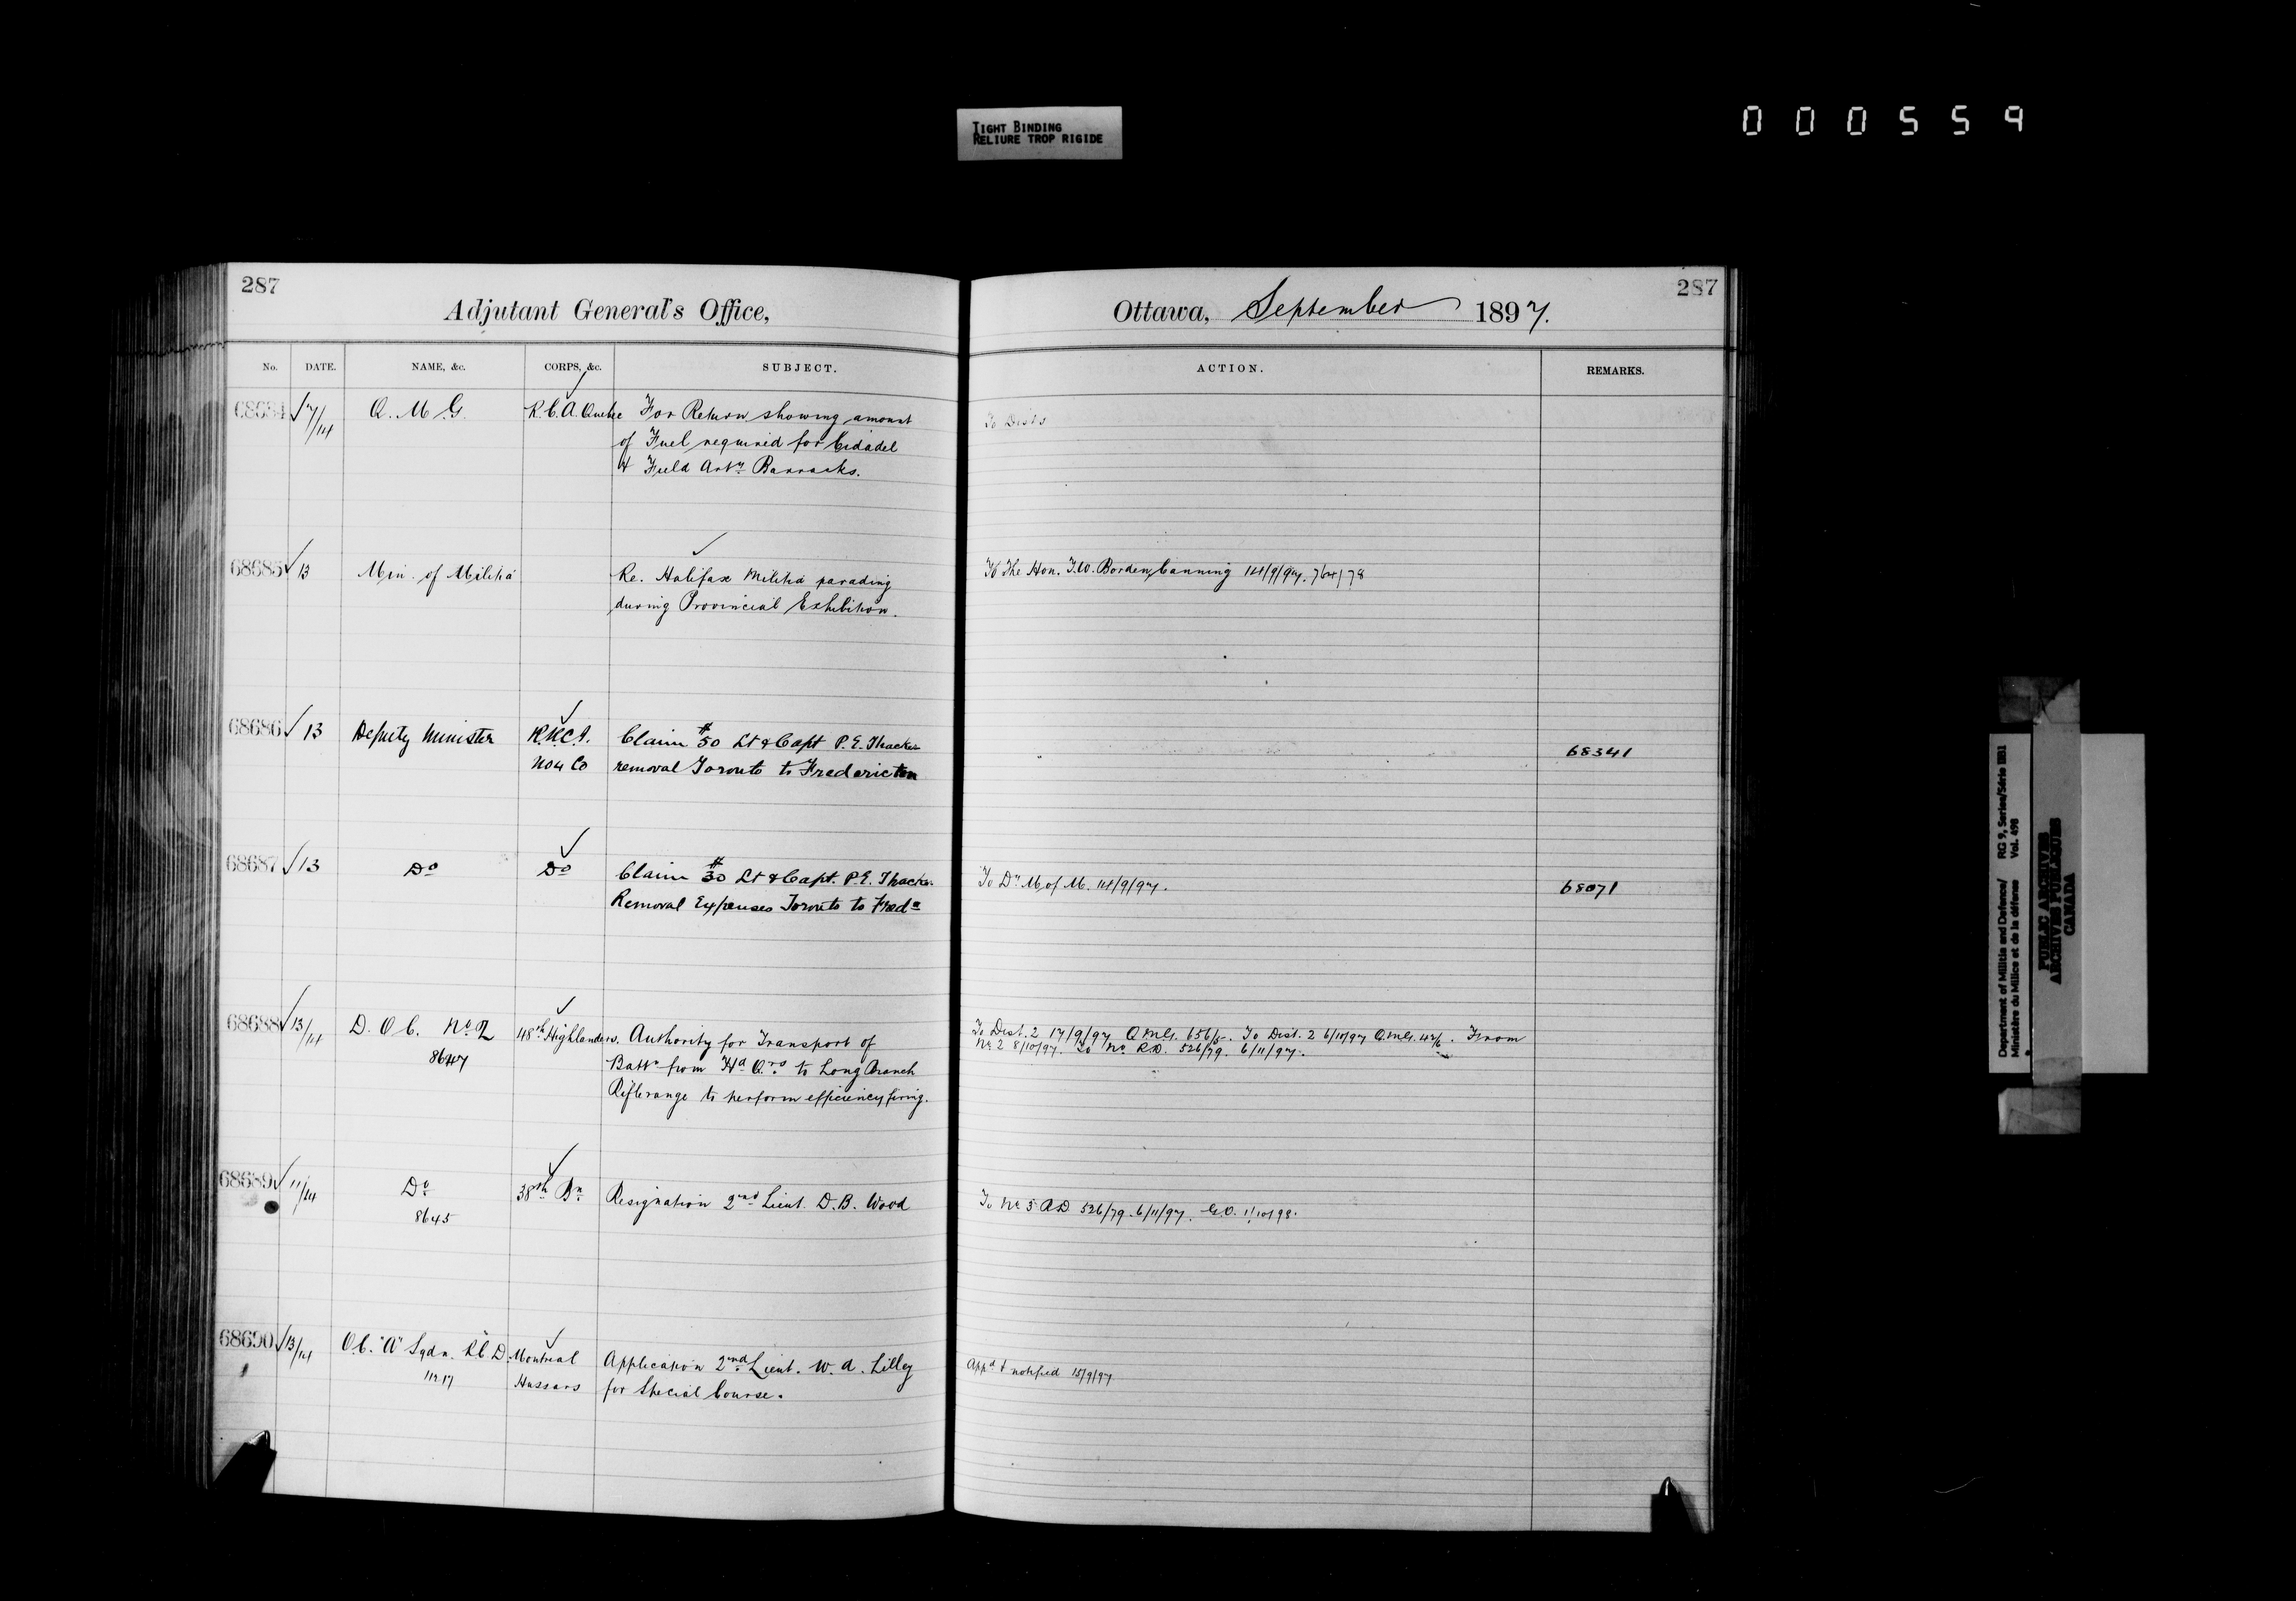 TIGHT BINDING
RELIURE TROP RIGIDE
000559
287
Adjutant General's Office,
No. DATE. NAME, &c. CORPS, &c. SUBJECT.
68684 7/14 Q. M. G. R.C.A. Quebec For Return showing amount
of Fuel required for Citadel
& Field Arty Barracks.
68685 13 Min. of Militia Re. Halifax Militia parading
during Provincial Exhibition.
68686 13 Deputy Minister Claim # 50 Lt & Capt P.E. Thacker
No 4 Co removal Toronto to Fredericton
68687 13 Do Do Claim # 30 Lt & Capt. P.E. Thacker
Removal Expenses Toronto to
68688 13/14 D. O. C. No. 2 48th Highlanders. Authority for Transport of
8647 Battn from Hd Qrs to Long Branch
Rifle range to perform efficiency firing.
68689 11/14 Do 38th Bn Resignation 2nd Lieut. D.B. Wood
8645
68690 13/14 O.C. "A" Sqdn. R.C.D. Montreal Application 2nd Lieut. W. A. Lilley
Hussars for Special Course.
287
Ottawa, September 1897.
ACTION. REMARKS.
To Dist 5
To The Hon. F.W. Borden, Canning 14/9/97. 764/78
68341
To Dy M. of M. 14/9/97. 68071
To Dist. 2 17/9/97 Q.M.G. To Dist. 2 6/10/97 Q.M.G. From
No. 2 8/10/97. To 526/79. 6/11/97.
To 526/79. 6/11/97. G.O.
Appd & notified 15/9/97
Department of Militia and Defence/ RG 9, Series/Série IIB1
Ministère du Milice et de la défense Vol. 498
PUBLIC ARCHIVES
ARCHIVES PUBLIQUES
CANADA